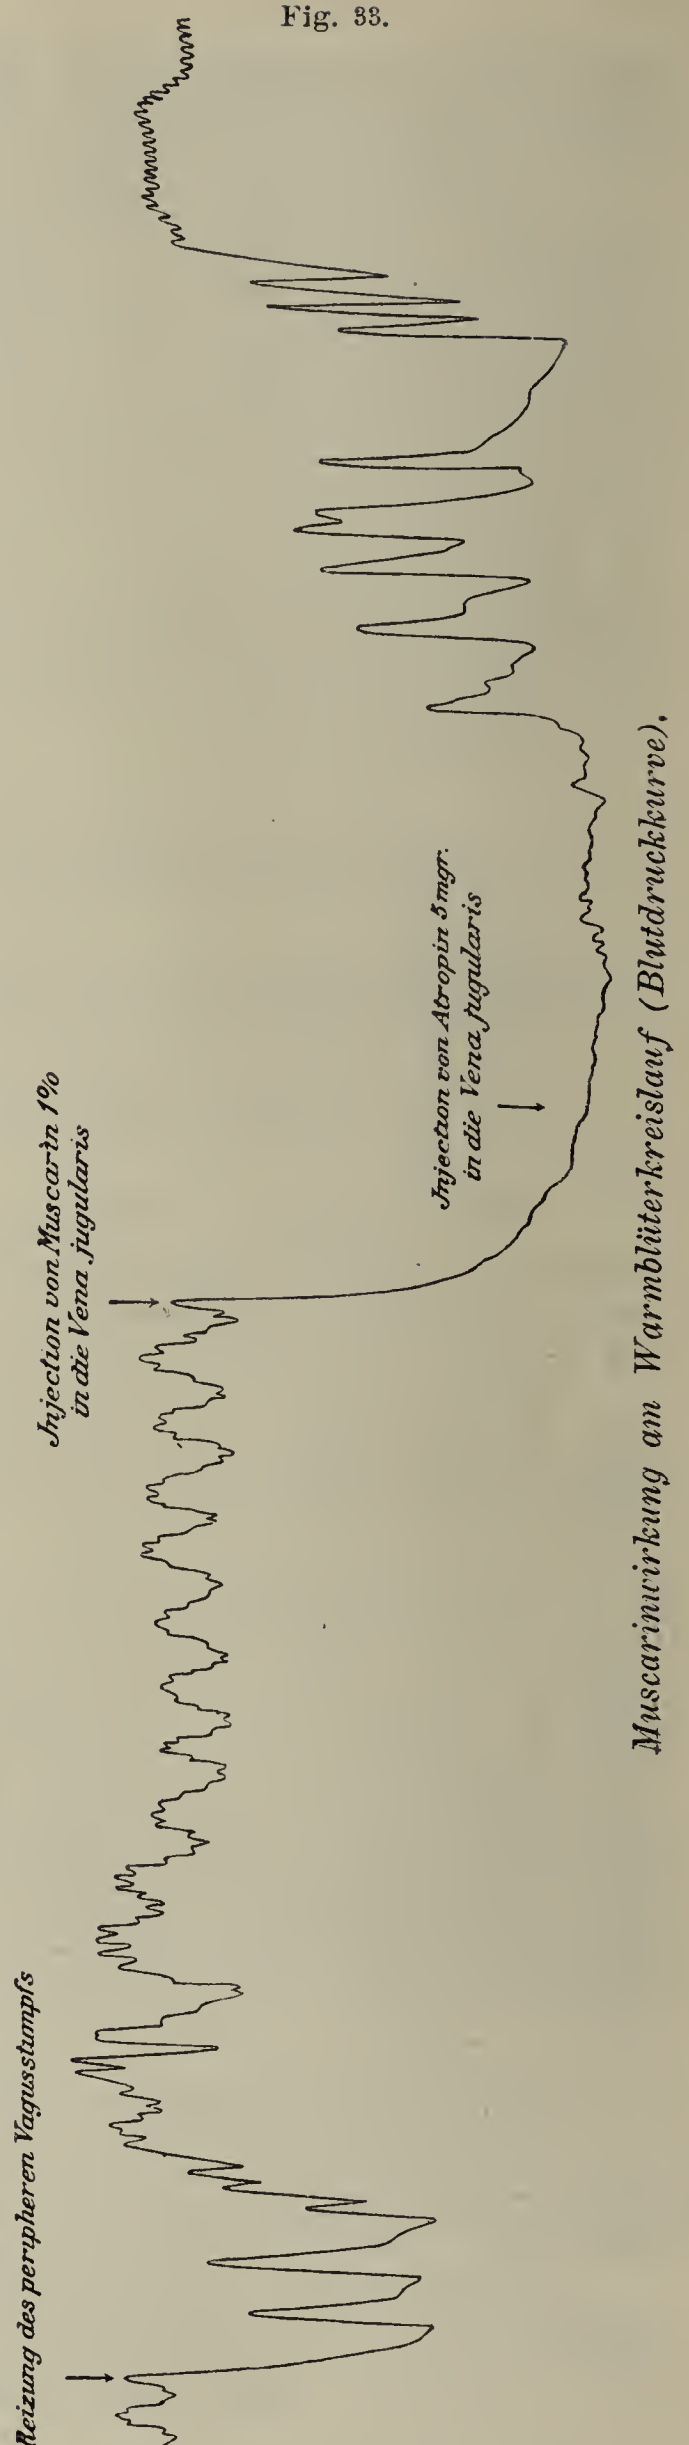 Fig. 33.
Reizung des peripheren Vagusstumpfs
Injection von Muscarin 1%
in die Vena jugularis
Injection von Atropin 5 mgr.
in die Vena jugularis
Muscarinwirkung am Warmblüterkreislauf (Blutdruckkurve).